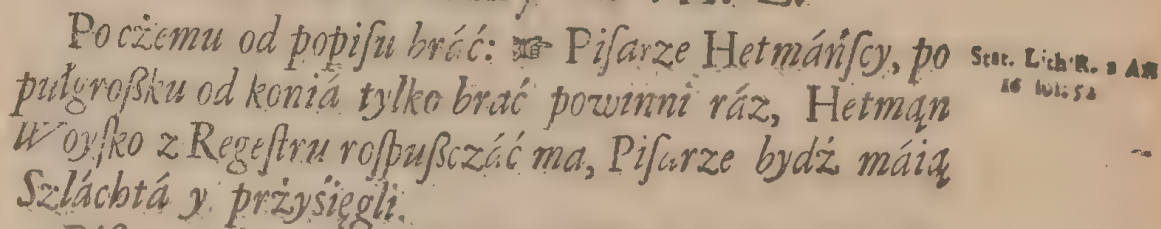 Po cżemu od popiſu bráć: ☞ Piſarze Hetmáńſcy, po
pułgroßku od koniá tylko brać powinni ráz, Hetmąn
Woyſko z Regeſtru roſpußczáć ma, Piſarze bydż máią
Szláchtá y prżyśięgli.
Stat. Lith R. 2 Ar
16 fol: 52